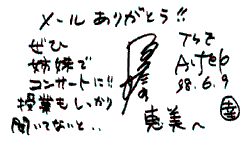 メールありがとう!!
ぜひ
姉妹で
コンサートに!!
授業もしっかり
聞いてないと..
98.6.9
恵美へ